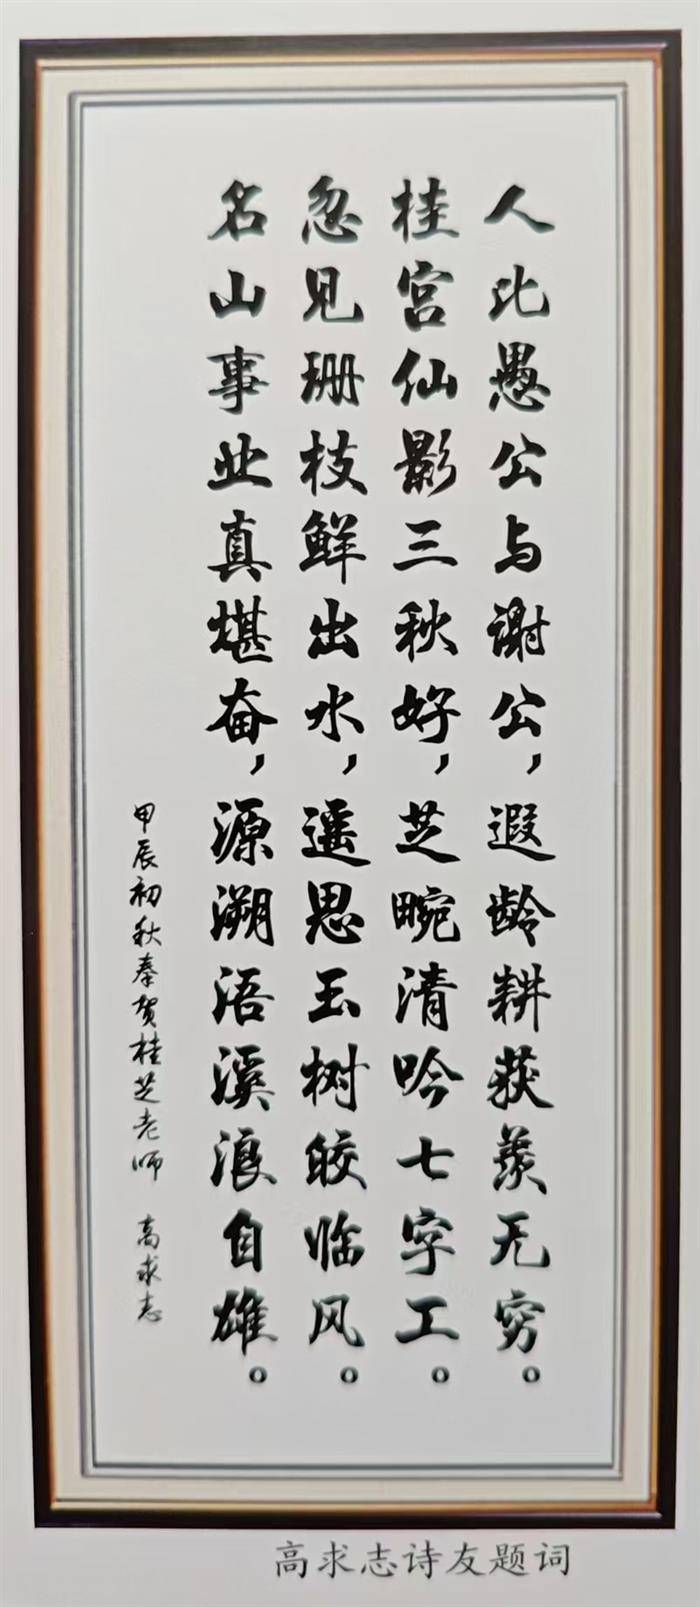 人比愚公与谢公，遐龄耕获羡无穷。
桂宫仙影三秋好，芝畹清吟七字工。
忽见珊枝鲜出水，遥思玉树皎临风。
名山事业真堪奋，源溯浯溪浪自雄。
甲辰初秋奉贺桂芝老师 高求志
高求志诗友题词